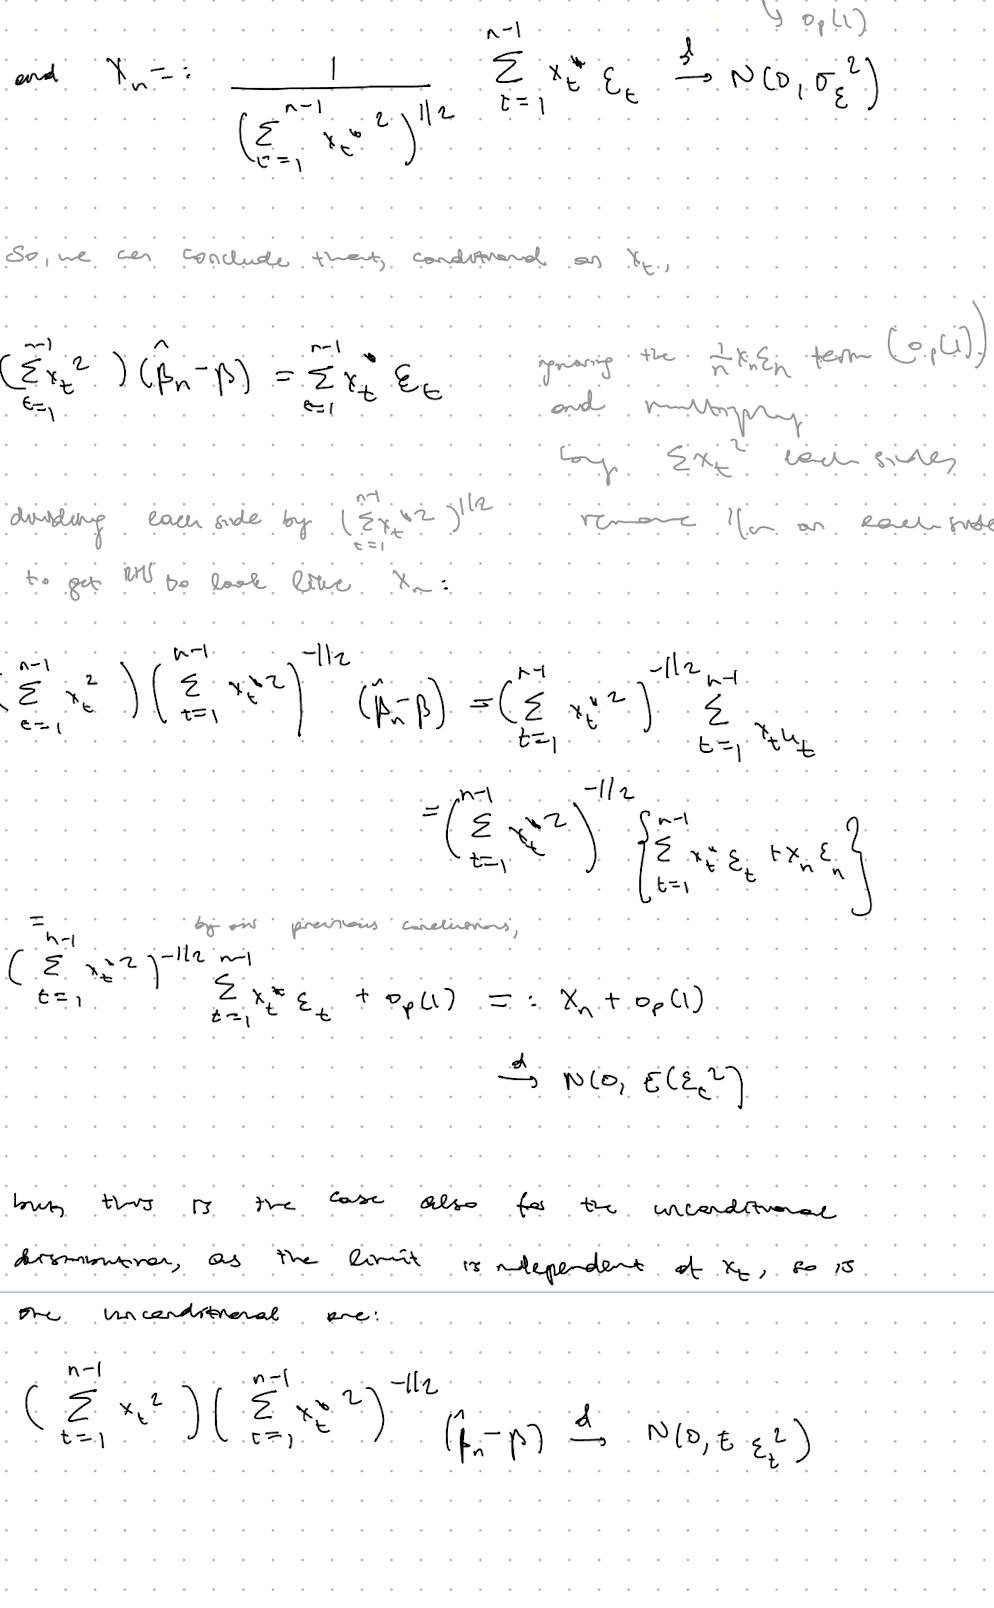 ↳ o_p(1)
and X_n =: 1 / (Σ_{t=1}^{n-1} x_t*²)^{1/2} Σ_{t=1}^{n-1} x_t* ε_t →^d N(0, σ_ε²)
So, we can conclude that, conditional on x_t,
(Σ_{t=1}^{n-1} x_t²)(β̂_n - β) = Σ_{t=1}^{n-1} x_t* ε_t
ignoring the 1/n x_n ε_n term (o_p(1))
and multiplying
by Σx_t² each sides
remove 1/n on each side
dividing each side by (Σ_{t=1}^{n-1} x_t*²)^{1/2}
to get RHS to look like X_n:
(Σ_{t=1}^{n-1} x_t²)(Σ_{t=1}^{n-1} x_t*²)^{-1/2} (β̂_n - β) = (Σ_{t=1}^{n-1} x_t*²)^{-1/2} Σ_{t=1}^{n-1} x_t u_t
= (Σ_{t=1}^{n-1} x_t*²)^{-1/2} {Σ_{t=1}^{n-1} x_t* ε_t + x_n ε_n}
= by our previous conclusions,
(Σ_{t=1}^{n-1} x_t*²)^{-1/2} Σ_{t=1}^{n-1} x_t* ε_t + o_p(1) =: X_n + o_p(1)
→^d N(0, E(ε_t²)
but, this is the case also for the unconditional
distribution, as the limit is independent of x_t, so is
the unconditional one:
(Σ_{t=1}^{n-1} x_t²)(Σ_{t=1}^{n-1} x_t*²)^{-1/2} (β̂_n - β) →^d N(0, E ε_t²)